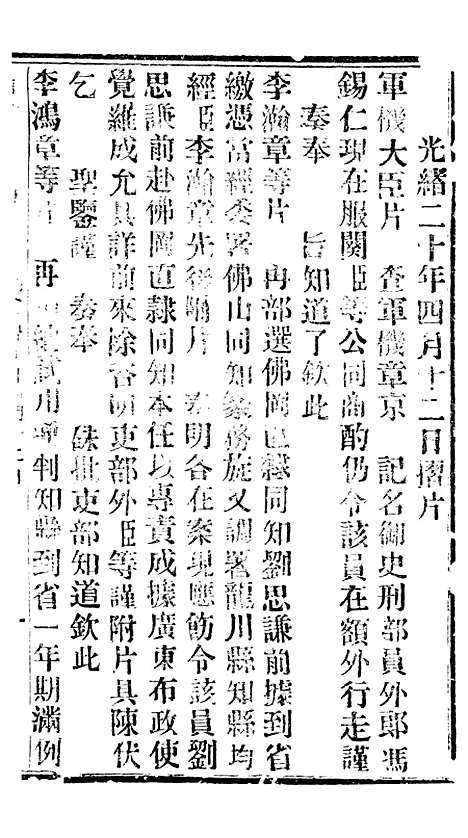 光緒二十年四月十二日摺片
軍機大臣片 查軍機章京 記名御史刑部員外郎馮
錫仁現在服闋臣等公同商酌仍令該員在額外行走謹
奏奉 旨知道了欽此
李瀚章等片 再部選佛岡直隸同知劉思謙前據到省
繳憑當經委署佛山同知 務旋又調署龍川縣知縣均
經臣李瀚章先後 片 奏明各在案現應飭令該員劉
思謙前赴佛岡直隸同知本任以專責成據廣東布政使
覺羅成允具詳前來除咨明吏部外臣等謹附片具陳伏
乞 聖鑒謹 奏奉 硃批吏部知道欽此
李鴻章等片 再 試用 判知縣到省一年期滿例